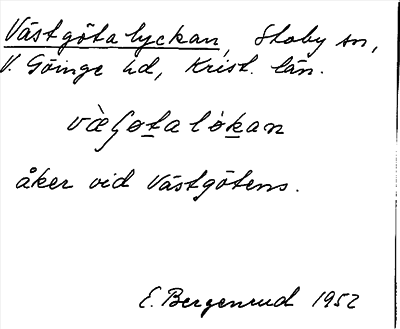 Västgötalyckan, Stoby sn,
V. Göinge hd, Krist. län.
åker vid Västgötens.
E. Bergenrud 1952